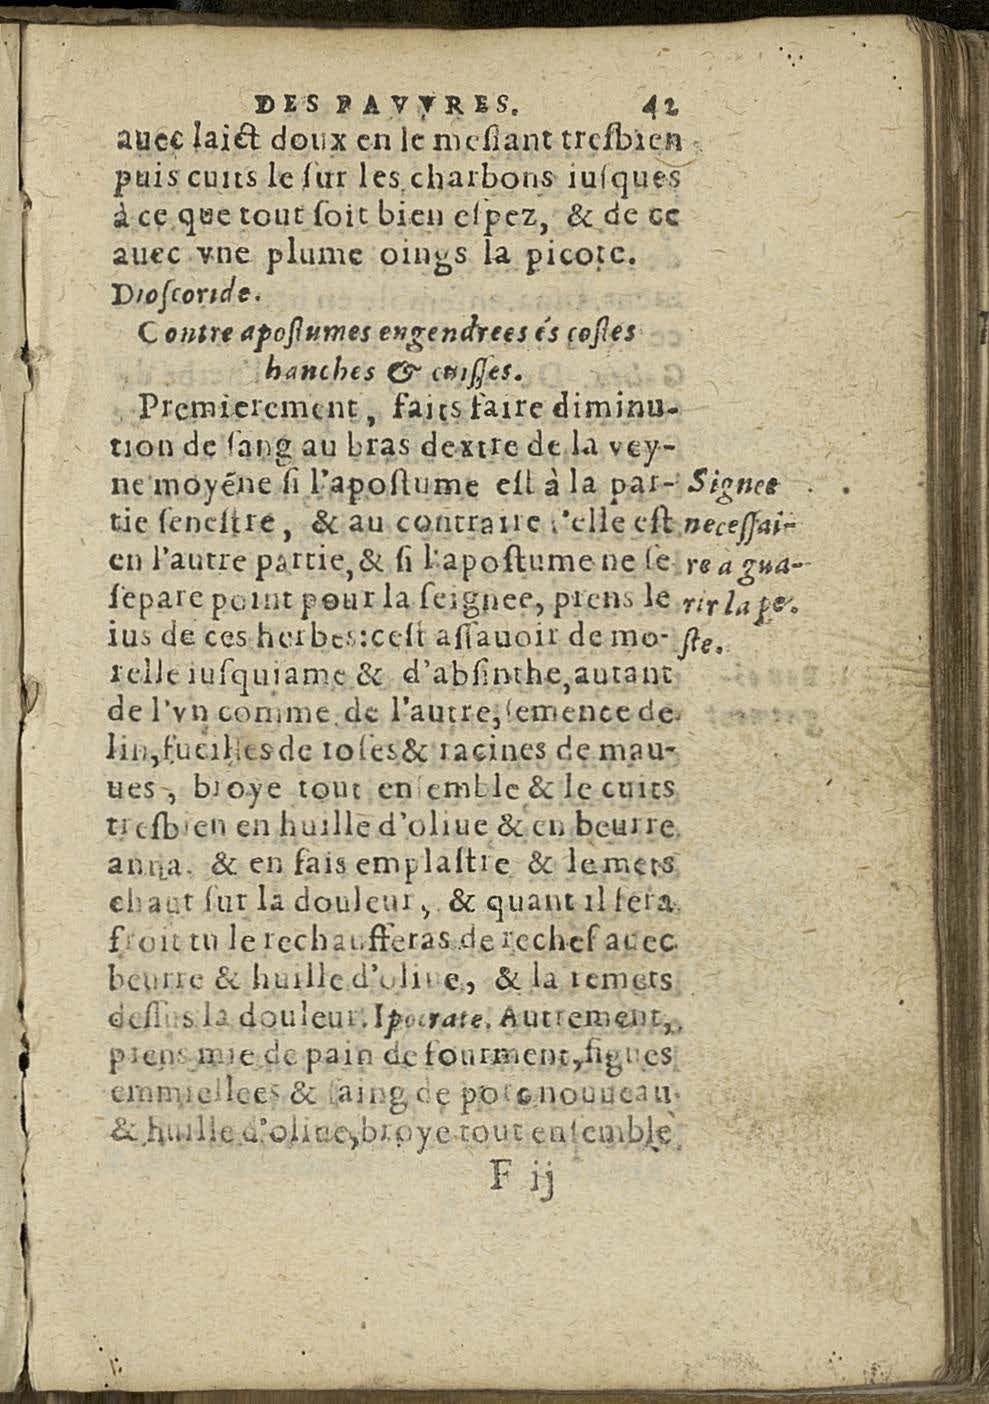 DES PAVVRES. 42
auec laict doux en le meſlant treſbien
puis cuits le ſur les charbons iuſques
à ce que tout ſoit bien eſpez, & de ce
auec vne plume oings la picote.
Dioſcoride.
Contre apoſtumes engendrees és coſtes
hanches & cuiſſes.
Premierement, faits faire diminu-
tion de ſang au bras dextre de la vey-
ne moyéne ſi l'apoſtume eſt à la par-
tie ſeneſtre, & au contraire s'elle eſt
en l'autre partie, & ſi l'apoſtume ne ſe
ſepare point pour la ſeignee, prens le
ius de ces herbes: ceſt aſſauoir de mo-
relle iuſquiame & d'abſinthe, autant
de l'vn comme de l'autre, ſemence de
lin, fueilles de roſes & racines de mau-
ues, broye tout enſemble & le cuits
treſbien en huille d'oliue & en beurre
anna. & en fais emplaſtre & le mets
chaut ſur la douleur, & quant il ſera
froit tu le rechaufferas de rechef auec
beurre & huille d'oliue, & la remets
deſſus la douleur. Ipocrate. Autrement,
prens mie de pain de fourment, figues
emmiellees & ſaing de porc nouueau
& huille d'oliue, broye tout enſemble
F ij
Signee
neceſſai-
re à gua-
rir la pe-
ſte.